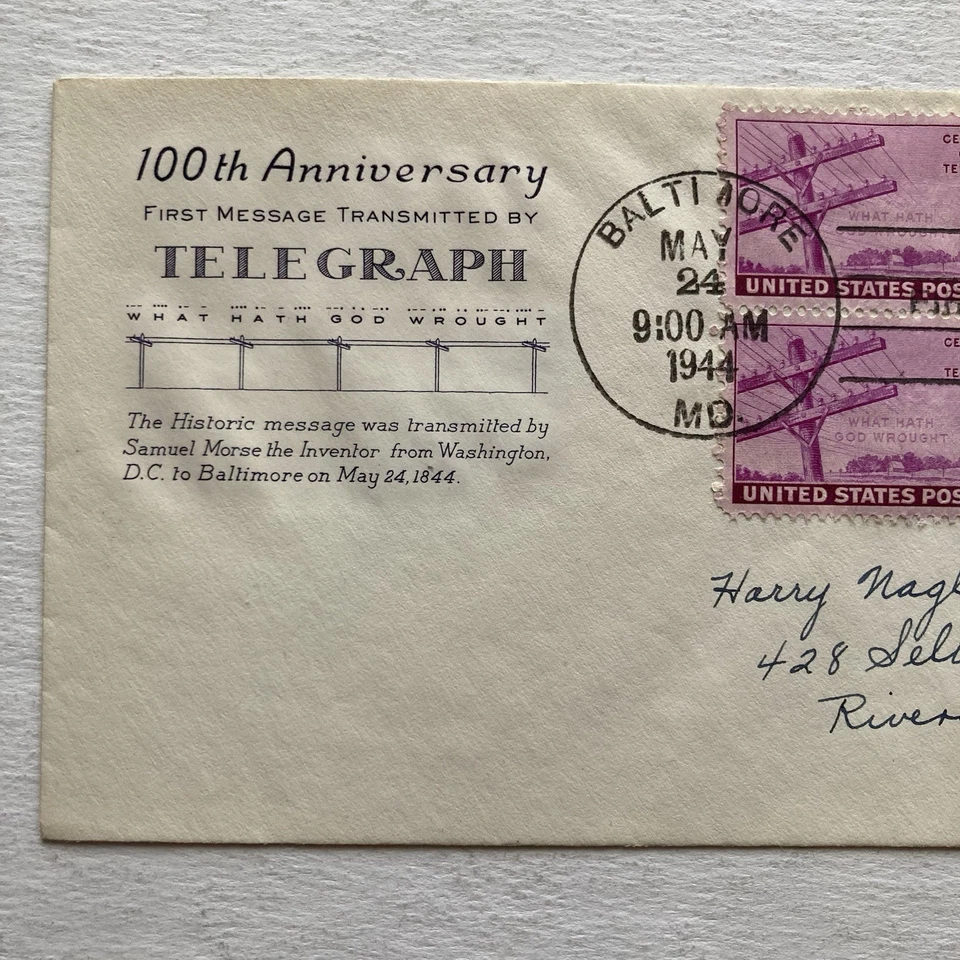 100th Anniversary
FIRST MESSAGE TRANSMITTED BY
TELEGRAPH
WHAT HATH GOD WROUGHT
The Historic message was transmitted by
Samuel Morse the Inventor from Washington,
D.C. to Baltimore on May 24, 1844.
BALTIMORE
MAY
24
9:00 AM
1944
MD.
WHAT HATH
UNITED STATES POS
WHAT HATH
GOD WROUGHT
UNITED STATES POS
Harry
428